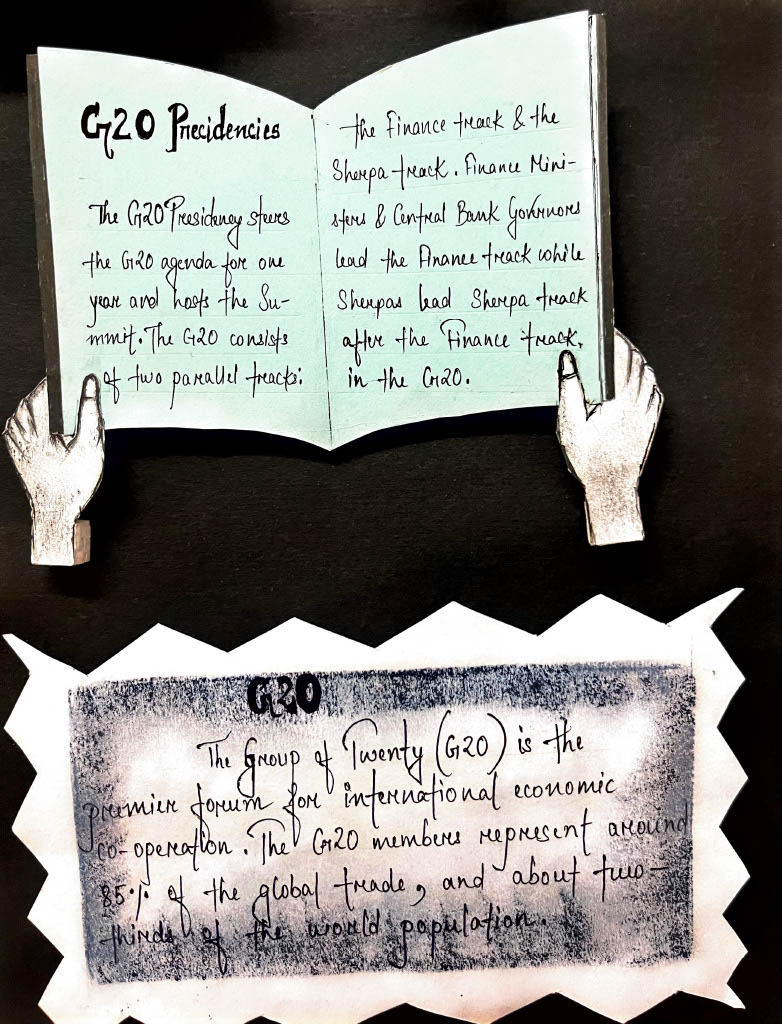 G20 Precidencies
The G20 Presidency steers
the G20 agenda for one
year and hosts the Su-
mmit. The G20 consists
of two parallel tracks:
the Finance track & the
Sherpa track. Finance Mini-
sters & Central Bank Governors
lead the Finance track while
Sherpas lead Sherpa track
after the Finance track,
in the G20.
G20
The Group of Twenty (G20) is the
premier forum for international economic
co-operation. The G20 members represent around
85% of the global trade, and about two-
thirds of the world population.